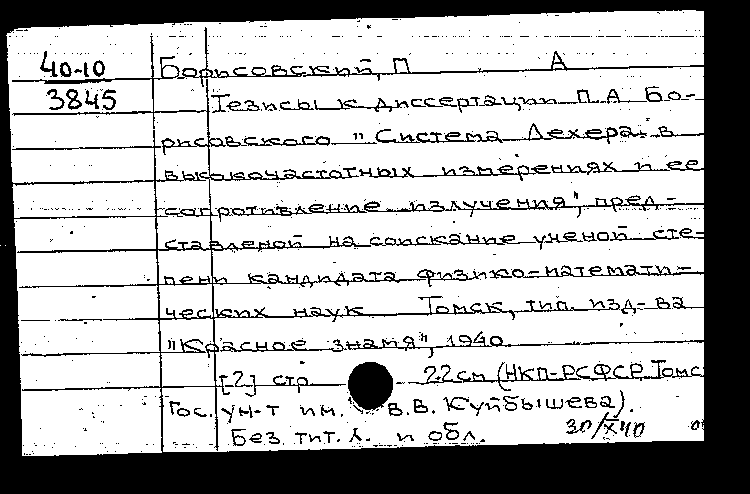 40-10
3845
Борисовский, П А
Тезисы к диссертации П.А Бо-
рисовского "Система Лехера в
высокочастотных измерениях и ее
сопротивление излучения", пред-
ставленой на соискание ученой сте-
пени кандидата физико-математи-
ческих наук Томск, тип. изд-ва
"Красное знамя", 1940.
[2] стр. 22см (НКП-РСФСР. Томс
Гос. ун-т им. В.В. Куйбышева).
Без тит. л. и обл.
30/X 40